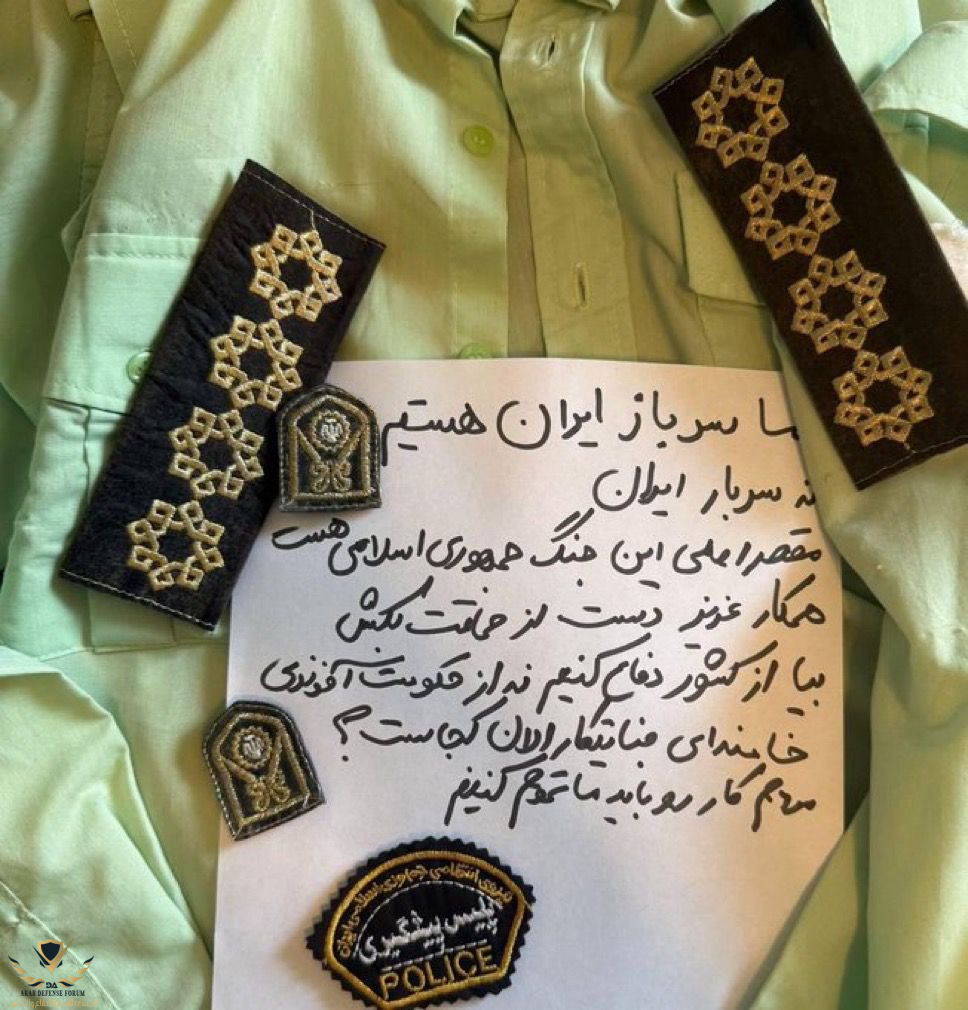 ما سرباز ایران هستیم
نه سربار ایران
مقصر اصلی این جنگ جمهوری اسلامی هست
همکار عزیز دست از حماقت بکش
بیا از کشور دفاع کنیم نه از حکومت آخوندی
خامنه‌ای جنایتکار الان کجاست؟
کار رو باید ما تموم کنیم
نیروی انتظامی جمهوری اسلامی ایران
پلیس پیشگیری
POLICE
DA
ARAB DEFENSE FORUM